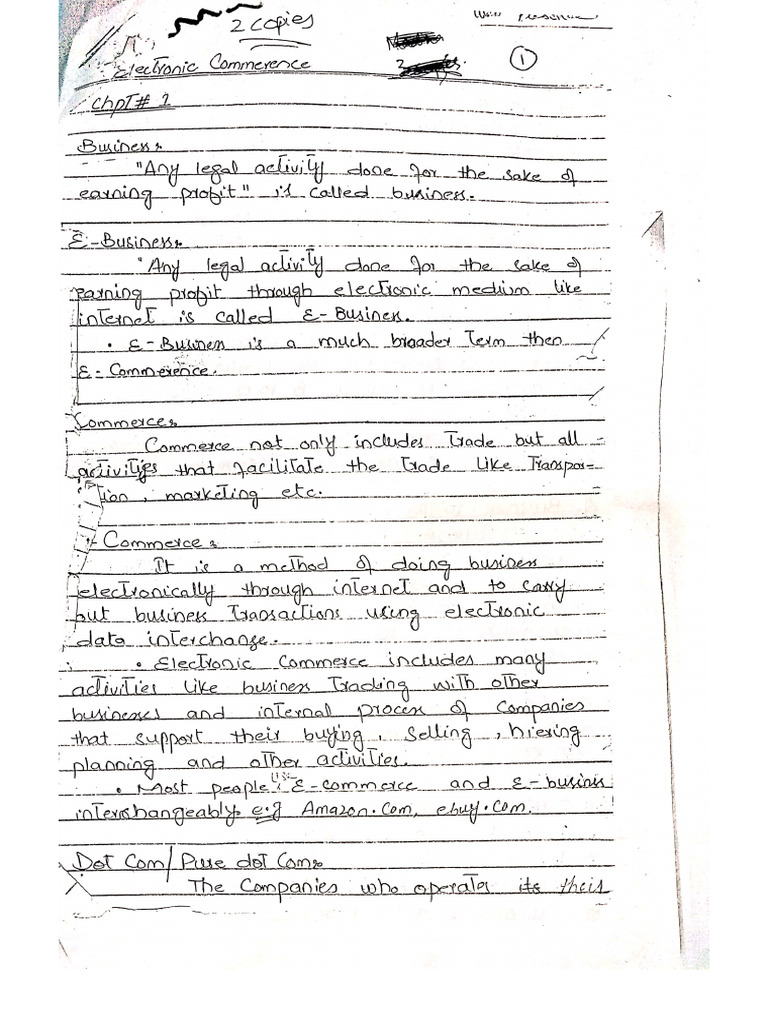 2 copies
①
Electronic Commerence
Chpt# 1
Business:
"Any legal activity done for the sake of
earning profit" is called business.
E-Business:
"Any legal activity done for the sake of
earning profit through electronic medium like
internet is called E-Business.
• E-Business is a much broader term then
E-Commerence.
Commerce:
Commerce not only includes trade but all
activities that facilitate the trade like Transpor-
tion, marketing etc.
E-Commerce:
It is a method of doing business
electronically through internet and to carry
out business transactions using electronic
data interchange.
• Electronic Commerce includes many
activities like business trading with other
businesses and internal process of Companies
that support their buying, selling, hiering
planning and other activities.
• Most people use E-commerce and E-business
interchangeably. e.g Amazon.com, ebuy.com.
Dot Com/Pure dot Com:
The Companies who operates its their